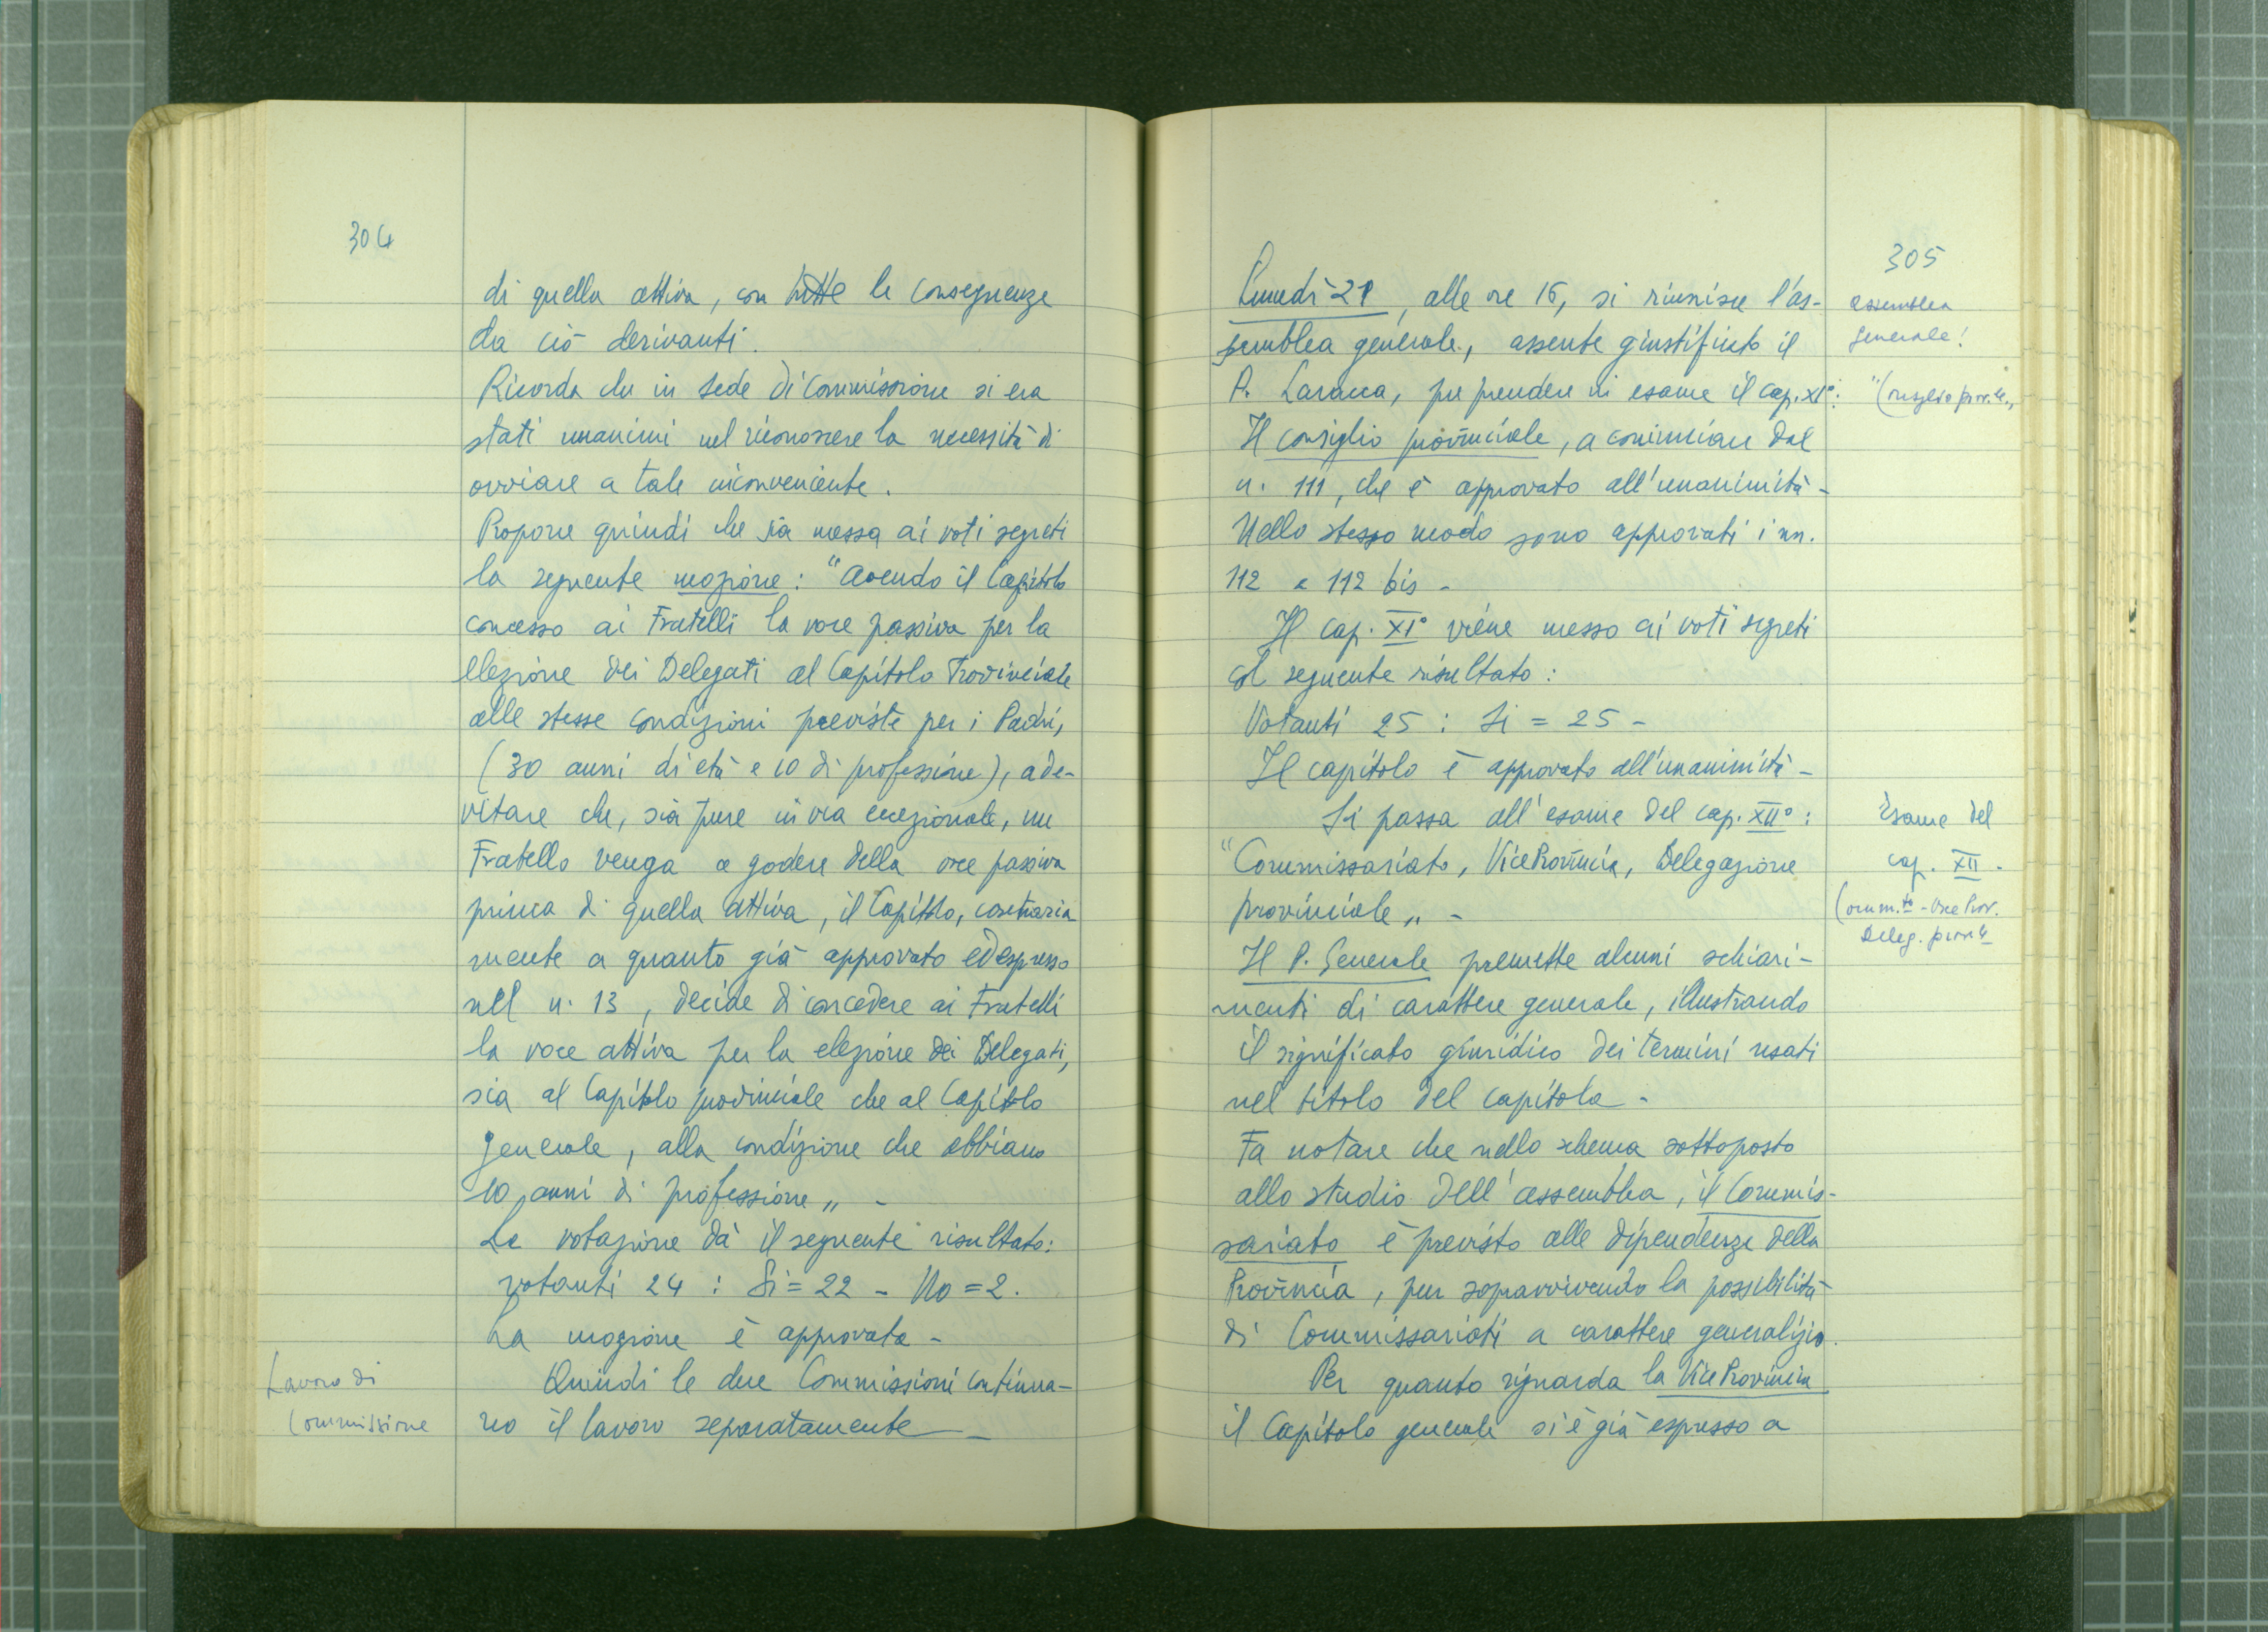 304
di quella attiva, con tutte le conseguenze
da ciò derivanti.
Ricorda che in sede di Commissione si era
stati unanimi nel riconoscere la necessità di
ovviare a tale inconveniente.
Propone quindi che sia messa ai voti segreti
la seguente mozione: "Avendo il Capitolo
concesso ai Fratelli la voce passiva per la
elezione dei Delegati al Capitolo Provinciale
alle stesse condizioni previste per i Padri,
(30 anni di età e 10 di professione), ad e-
vitare che, sia pure in via eccezionale, un
Fratello venga a godere della voce passiva
prima di quella attiva, il Capitolo, contraria
mente a quanto già approvato ed espresso
nel n. 13, decide di concedere ai Fratelli
la voce attiva per la elezione dei Delegati,
sia al Capitolo provinciale che al Capitolo
generale, alla condizione che abbiano
10 anni di professione„ -
La votazione dà il seguente risultato:
votanti 24 : Si = 22 - No = 2.
La mozione è approvata -
Quindi le due Commissioni continua-
no il lavoro separatamente -
Lavoro di
Commissione
305
Lunedì 21, alle ore 16, si riunisce l'as-
semblea generale, assente giustificato il
P. Laracca, per prendere in esame il cap. XI°:
Il consiglio provinciale, a cominciare dal
n. 111, che è approvato all'unanimità -
Nello stesso modo sono approvati i nn.
112 e 112 bis -
Il cap. XI° viene messo ai voti segreti
col seguente risultato:
Votanti 25 : Si = 25 -
Il capitolo è approvato all'unanimità -
Si passa all'esame del cap. XII°:
"Commissariato, Vice Provincia, Delegazione
provinciale„ -
Il P. Generale premette alcuni schiari-
menti di carattere generale, illustrando
il significato giuridico dei termini usati
nel titolo del capitolo -
Fa notare che nello schema sottoposto
allo studio dell'assemblea, il Commis-
sariato è previsto alle dipendenze della
Provincia, pur sopravvivendo la possibilità
di Commissariati a carattere generalizio.
Per quanto riguarda la Vice Provincia
il Capitolo generale si è già espresso a
assemblea
generale!
"Consiglio prov.le„
Esame del
cap. XII -
Comm.to - Vice Prov.
Deleg. prov.le